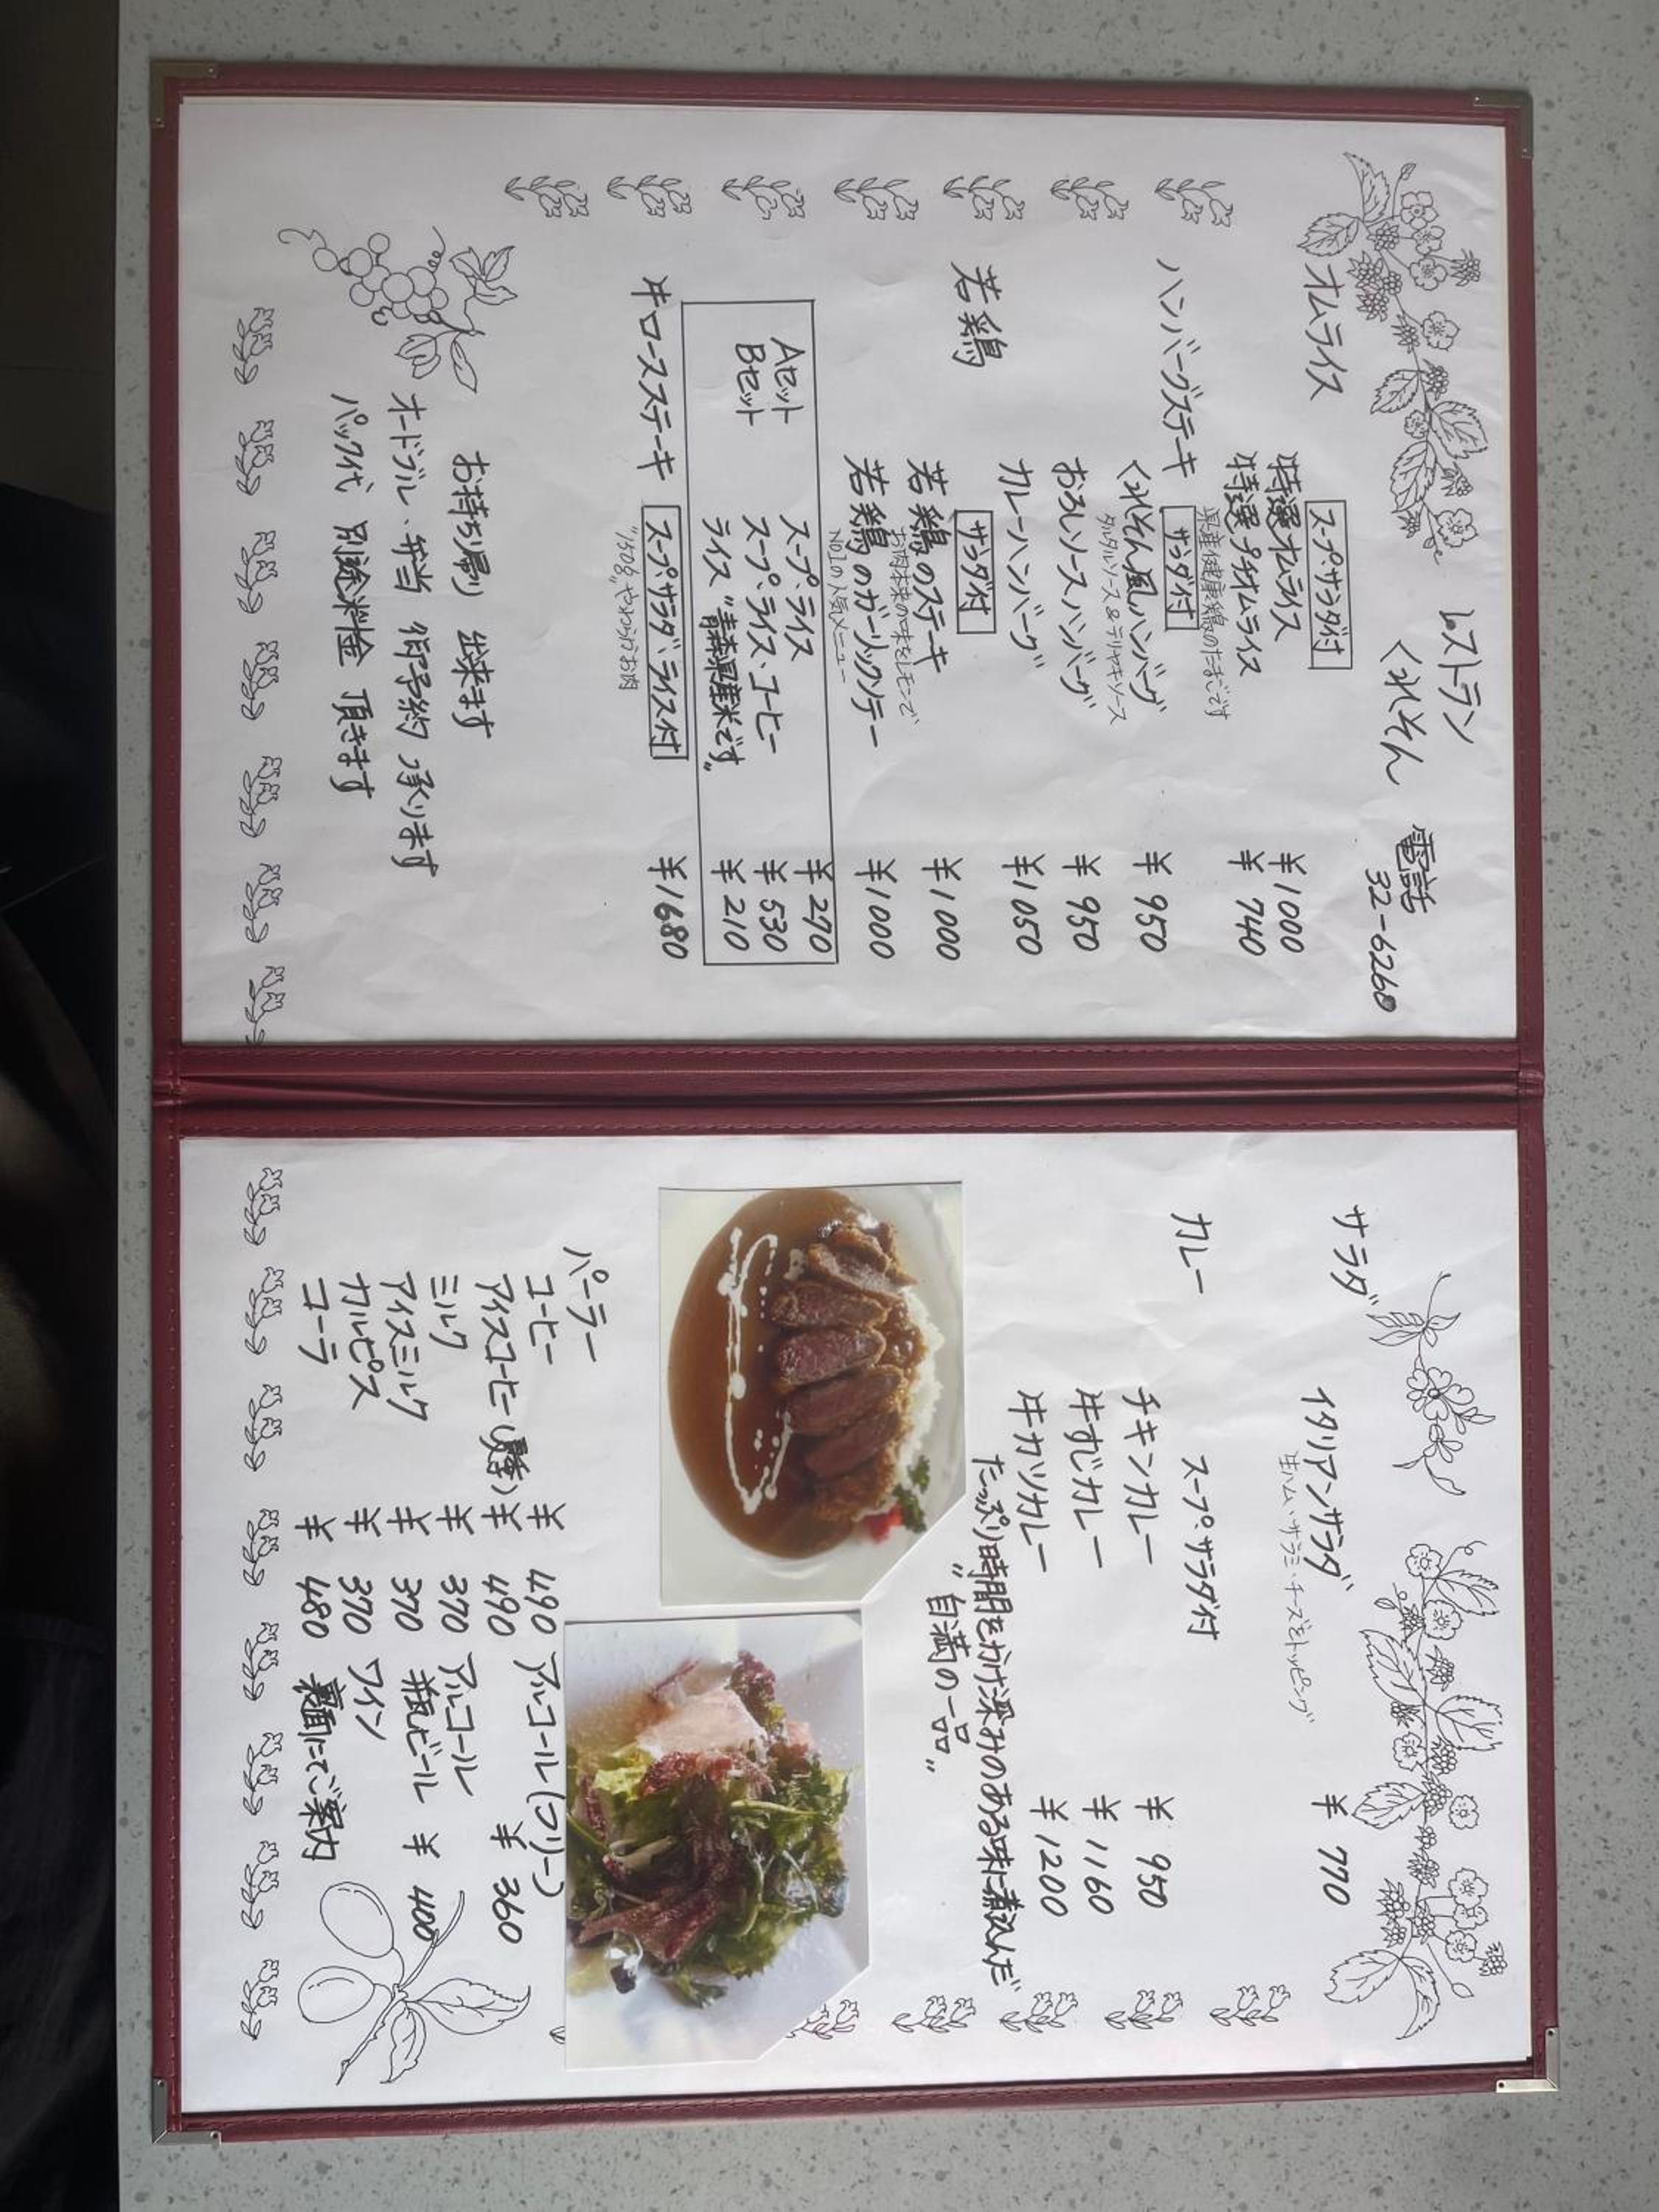 レストラン
くれそん
電話
32-6260
オムライス
スープ・サラダ付
特選オムライス ¥1000
特選プチオムライス ¥740
県産健康鶏のたまごです
ハンバーグステーキ サラダ付
くれそん風ハンバーグ ¥950
タルタルソース&テリヤキソース
おろしソースハンバーグ ¥950
カレーハンバーグ ¥1050
若鶏 サラダ付
若鶏のステーキ ¥1000
お肉本来の味をレモンで
若鶏のガーリックソテー ¥1000
NO1の人気メニュー
Aセット スープ・ライス ¥270
Bセット スープ・ライス・コーヒー ¥530
ライス "青森県産米です" ¥210
牛ロースステーキ スープ・サラダ・ライス付 ¥1680
"150g" やわらかお肉
お持ち帰り 出来ます
オードブル、弁当 御予約 承ります
パック代 別途料金 頂きます
サラダ
イタリアンサラダ ¥770
生ハム・サラミ・チーズをトッピング
カレー
スープ・サラダ付
チキンカレー ¥950
牛すじカレー ¥1160
牛カツカレー ¥1200
たっぷり時間をかけ深みのある味に煮込んだ
"自満の一品"
パーラー
コーヒー ¥490
アイスコーヒー(夏季) ¥490
ミルク ¥370
アイスミルク ¥370
カルピス ¥370
コーラ ¥480
アルコール(フリー)
¥360
アルコール
瓶ビール ¥400
ワイン
裏面にてご案内